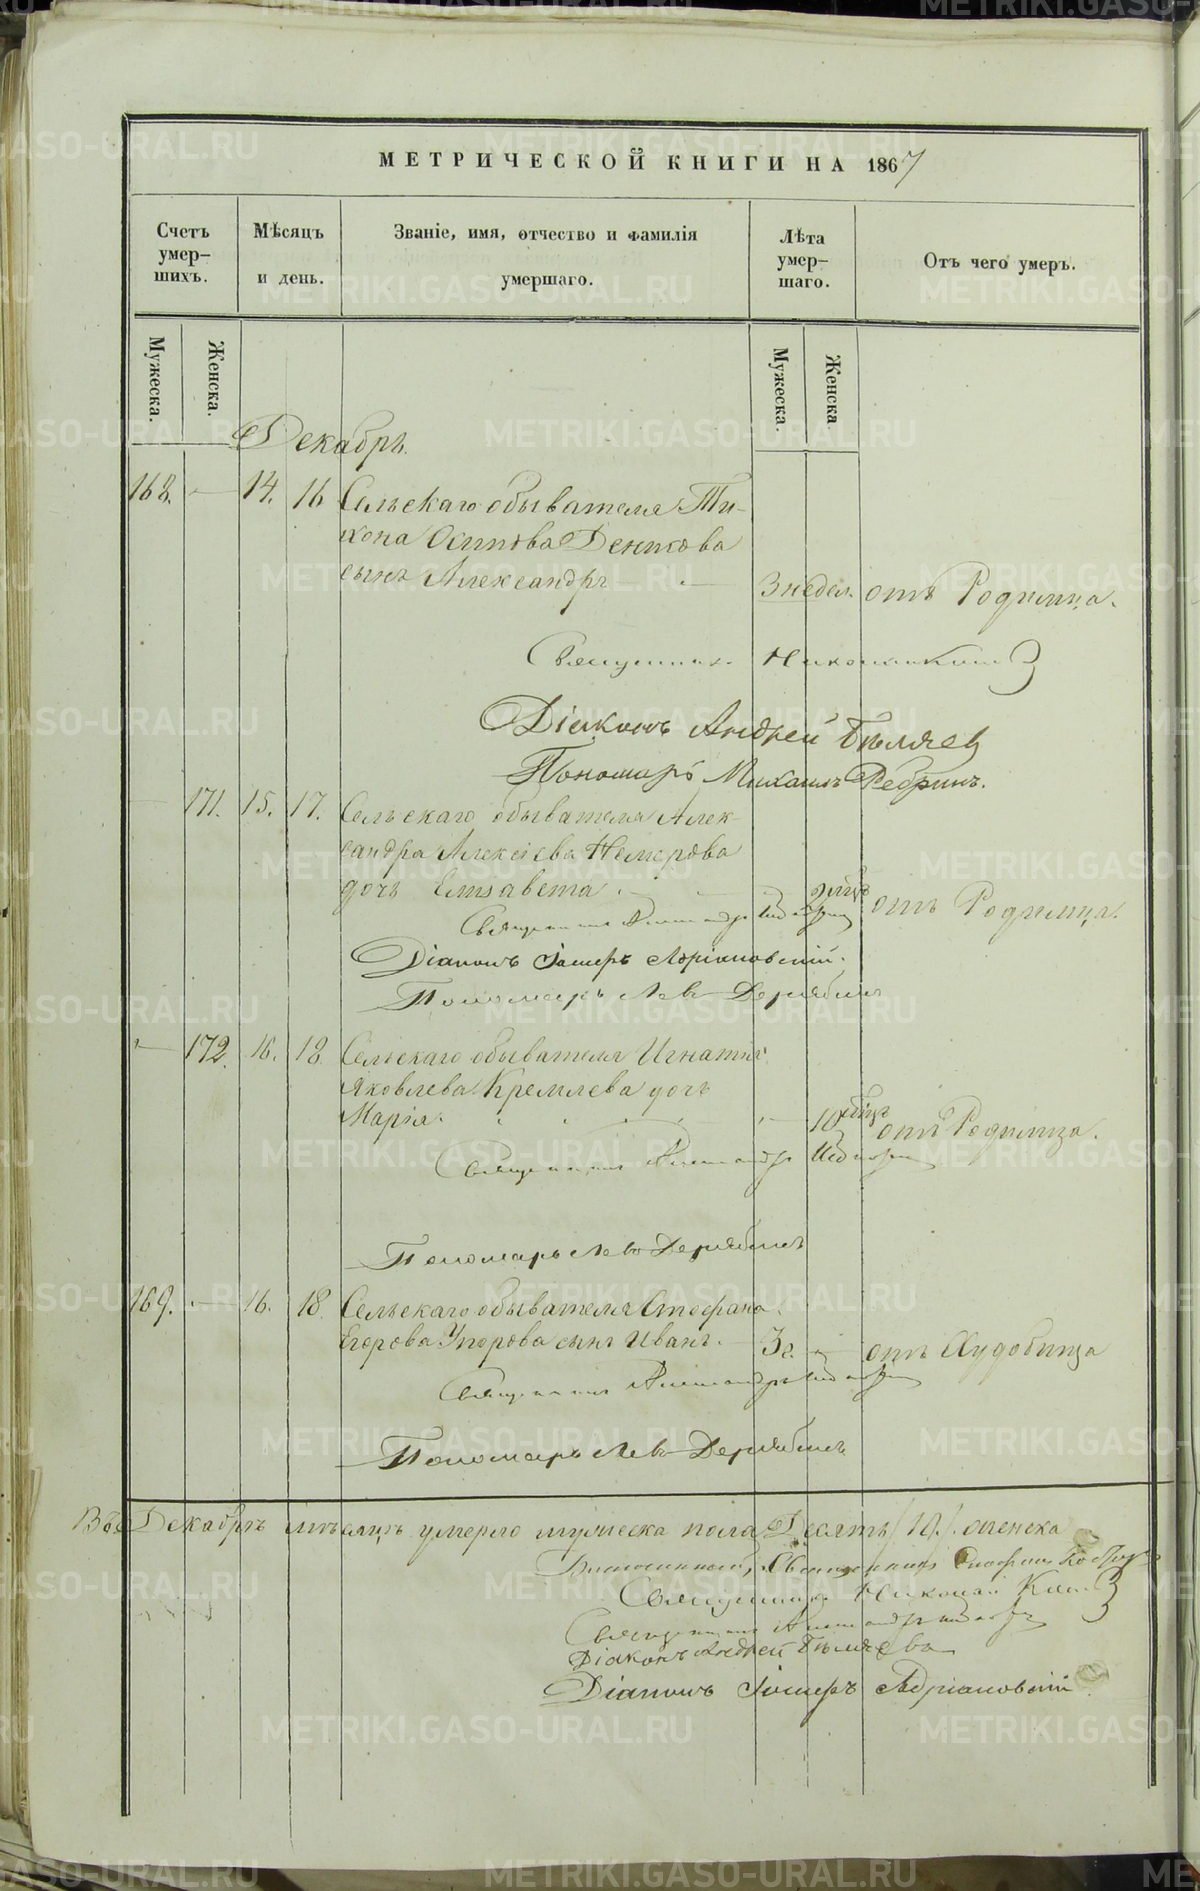 МЕТРИЧЕСКОЙ КНИГИ НА 1867
Счетъ умер-шихъ.
Мѣсяцъ и день.
Званіе, имя, отчество и фамилія умершаго.
Лѣта умер-шаго.
Отъ чего умеръ.
Мужеска. Женска. Мужеска. Женска
Декабрь.
168. — 14. 16 Сельскаго обывателя Ти-
хона Осипова Деникова
сынъ Александръ — 3 недел. отъ Родимца.
Священникъ Николай
Діаконъ Андрей Бѣляев
Пономарь Михаилъ Ребринъ.
— 171. 15. 17. Сельскаго обывателя Алек-
сандра Алексіева Немерова
дочь Елисавета отъ Родимца.
Священникъ Александръ
Діаконъ Іосифъ Адріановскій.
Пономарь Левъ Дерябинъ
— 172. 16. 18 Сельскаго обывателя Игнатія
Яковлева Кремлева дочь
Марія. — 10 отъ Родимца.
Священникъ Александръ
Пономарь Левъ Дерябинъ
169. — 16. 18 Сельскаго обывателя Стефана
Егорова Упорова сынъ Иванъ. — 3 г. отъ Худобища
Священникъ Александръ
Пономарь Левъ Дерябинъ
Въ Декабрѣ мѣсяцѣ умерло мужеска пола Десять /10/. женска
Священникъ
Священникъ Николай
Священникъ Александръ
Діаконъ Андрей Бѣляевъ
Діаконъ Іосифъ Адріановскій
METRIKI.GASO-URAL.RU